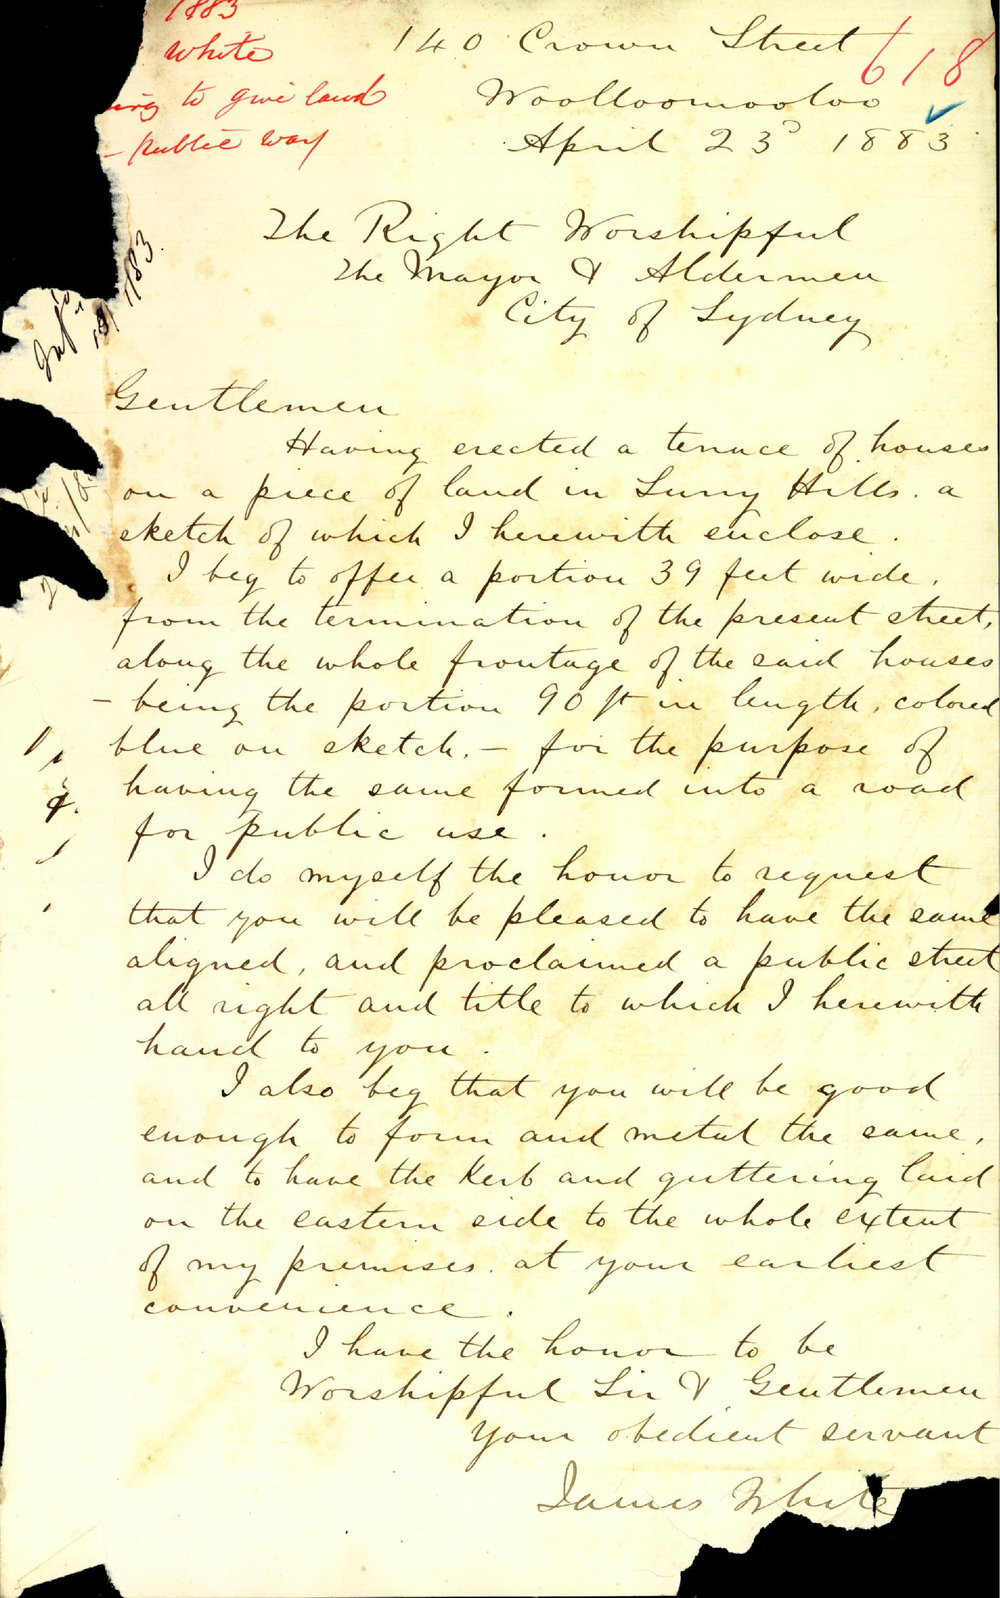 1883
White
to give land
- public way
618
140 Crown Street
Woolloomooloo
April 23d 1883
The Right Worshipful
The Mayor & Aldermen
City of Sydney
1883.
Gentlemen
Having erected a terrace of houses
on a piece of land in Surry Hills. a
sketch of which I herewith enclose.
I beg to offer a portion 39 feet wide,
from the termination of the present street,
along the whole frontage of the said houses
- being the portion 90 ft in length, colored
blue on sketch, - for the purpose of
having the same formed into a road
for public use.
I do myself the honor to request
that you will be pleased to have the same
aligned, and proclaimed a public street
all right and title to which I herewith
hand to you.
I also beg that you will be good
enough to form and metal the same,
and to have the kerb and guttering laid
on the eastern side to the whole extent
of my premises. at your earliest
convenience.
I have the honor to be
Worshipful Sir & Gentlemen
Your obedient servant
James White